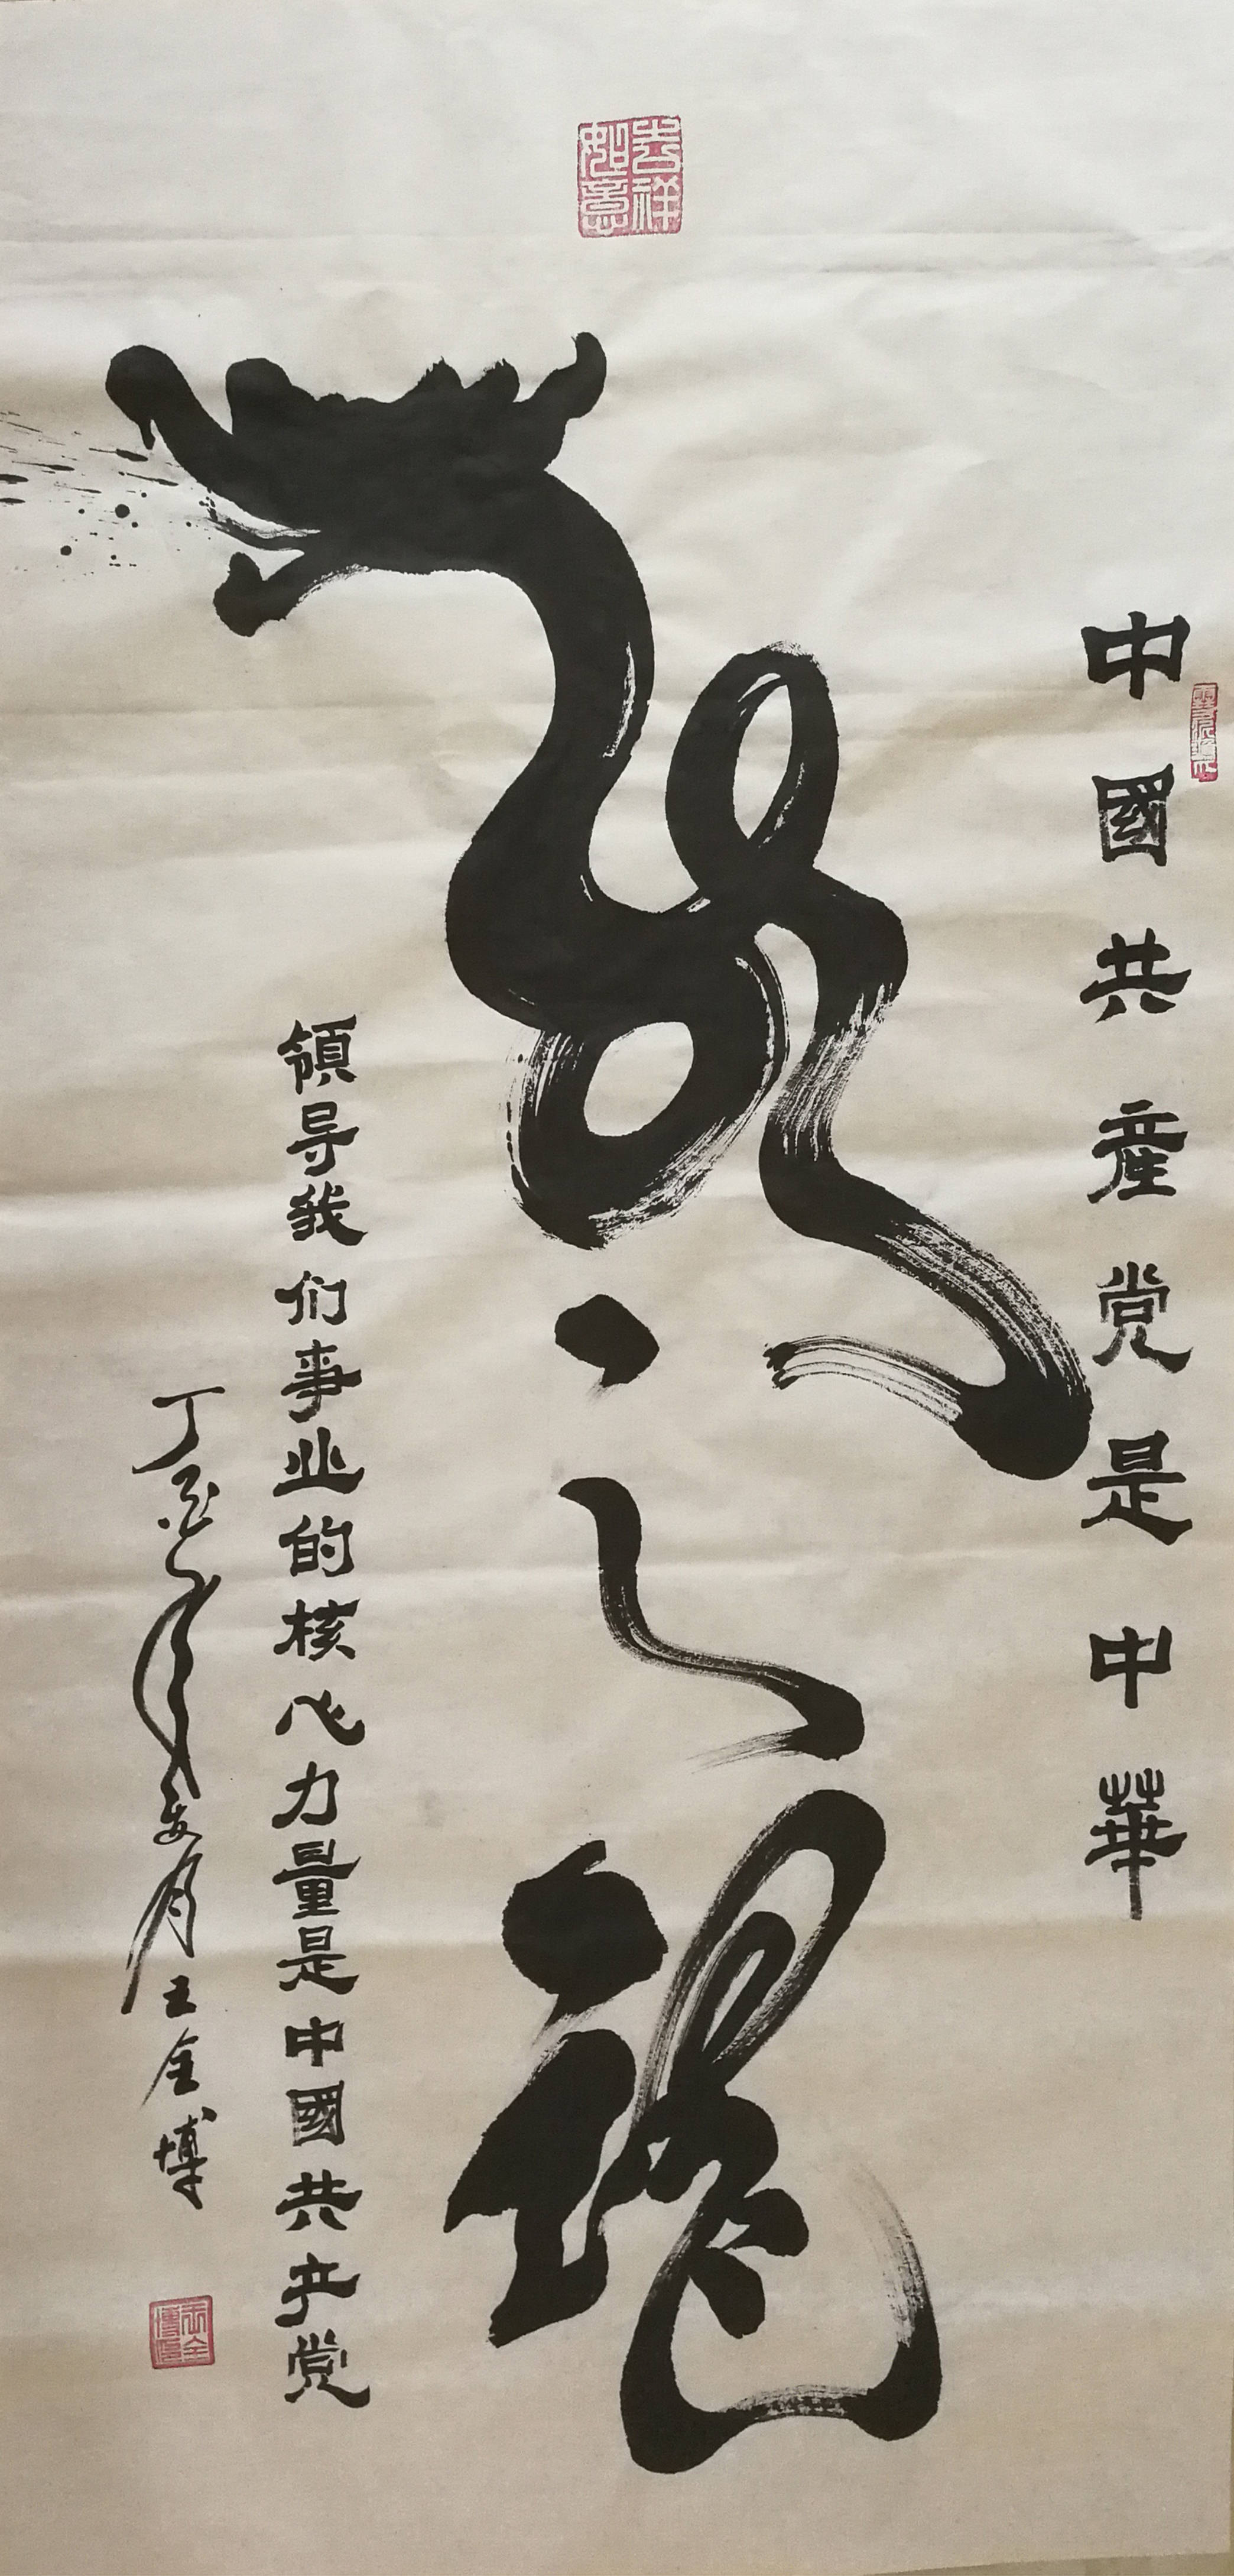 吉祥如意
中國共産党是中華
龍之魂
領导我们事业的核心力量是中國共产党
丁酉年夏月王全博